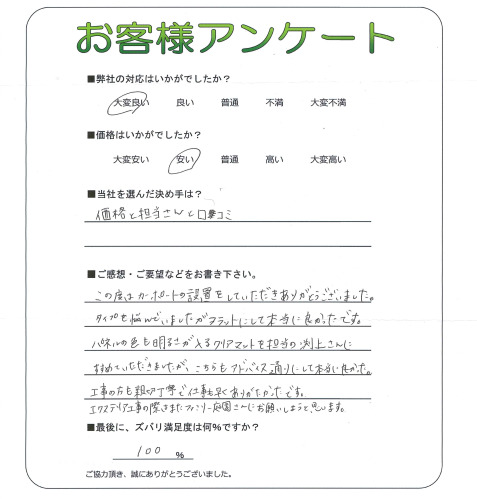 お客様アンケート
■弊社の対応はいかがでしたか？
大変良い 良い 普通 不満 大変不満
■価格はいかがでしたか？
大変安い 安い 普通 高い 大変高い
■当社を選んだ決め手は？
価格と担当さんと口コミ
■ご感想・ご要望などをお書き下さい。
この度はカーポートの設置をしていただきありがとうございました。
タイプを悩んでいましたがフラットにして本当に良かったです。
パネルの色も明るさが入るクリアマットを担当の渕上さんに
すすめていただきましたが、こちらもアドバイス通りにして本当に良かった。
工事の方も親切丁寧で仕事も早くありがたかったです。
エクステリア工事の際はまたファミリー庭園さんにお願いしようと思います。
■最後に、ズバリ満足度は何％ですか？
100 ％
ご協力頂き、誠にありがとうございました。